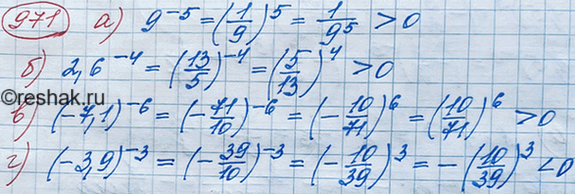 971 а) 9^{-5} = (1/9)^5 = 1/9^5 > 0
б) 2,6^{-4} = (13/5)^{-4} = (5/13)^4 > 0
©reshak.ru
в) (-7,1)^{-6} = (-71/10)^{-6} = (-10/71)^6 = (10/71)^6 > 0
г) (-3,9)^{-3} = (-39/10)^{-3} = (-10/39)^3 = -(10/39)^3 < 0